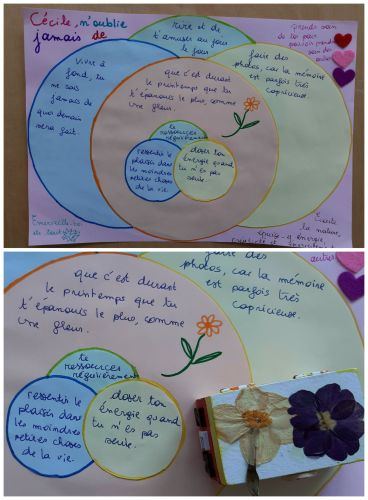 Cécile, n'oublie
jamais de
rire et de
t'amuser au jour
le jour
prends soin
de toi pour
pouvoir prendre
soin des
autres
Vivre à
fond, tu
ne sais
jamais de
quoi demain
sera fait.
que c'est durant
le printemps que tu
t'épanouis le plus, comme
une fleur.
faire des
photos, car la mémoire
est parfois très
capricieuse.
te
ressources
régulièrement
ressentir le
plaisir dans
les moindres
petites choses
de la vie.
doser ton
énergie quand
tu n'es pas
seule.
Émerveille-toi
de tout
Écoute
la nature,
énergie
faire des
photos, car la mémoire
est parfois très
capricieuse.
autres
que c'est durant
le printemps que tu
t'épanouis le plus, comme
une fleur.
te
ressources
régulièrement
ressentir le
plaisir dans
les moindres
petites choses
de la vie.
doser ton
énergie quand
tu n'es pas
seule.